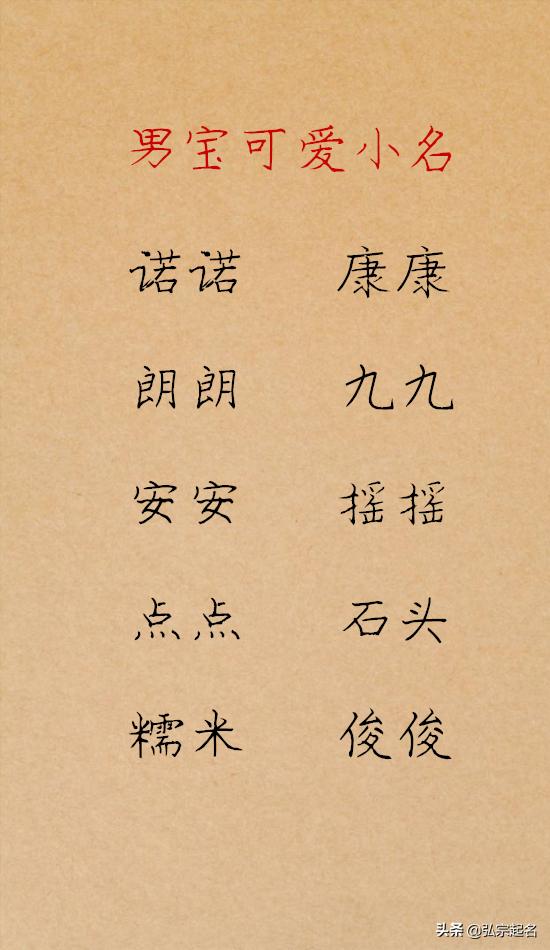 男宝可爱小名
诺诺 康康
朗朗 九九
安安 摇摇
点点 石头
糯米 俊俊
头条 @弘宗起名